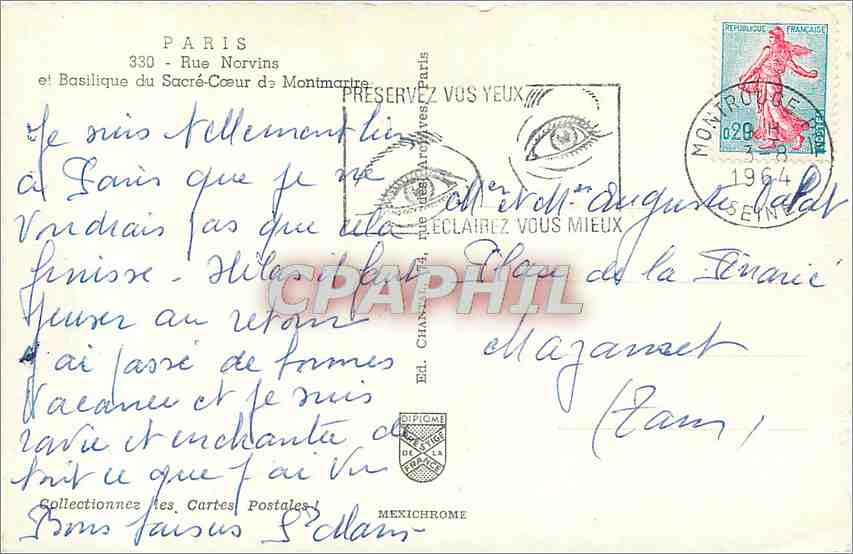 PARIS
330 - Rue Norvins
et Basilique du Sacré-Cœur de Montmartre
Je suis tellement bien
à Paris que je ne
voudrais pas que cela
finisse - Hélas il faut
penser au retour
J'ai passé de bonnes
vacances et je suis
ravie et enchantée de
tout ce que j'ai vu
Collectionnez les Cartes Postales !
Bons baisers
Ed. CHANTAL, 74, rue des Archives, Paris
DIPLOME
PRESTIGE
DE LA
FRANCE
MEXICHROME
PRESERVEZ VOS YEUX
ECLAIREZ VOUS MIEUX
REPUBLIQUE FRANÇAISE
0,20
POSTES
MONTROUGE
3-8
1964
SEINE
Mr et Mme Auguste
de la
Mazamet
(Tarn)
CPAPHIL